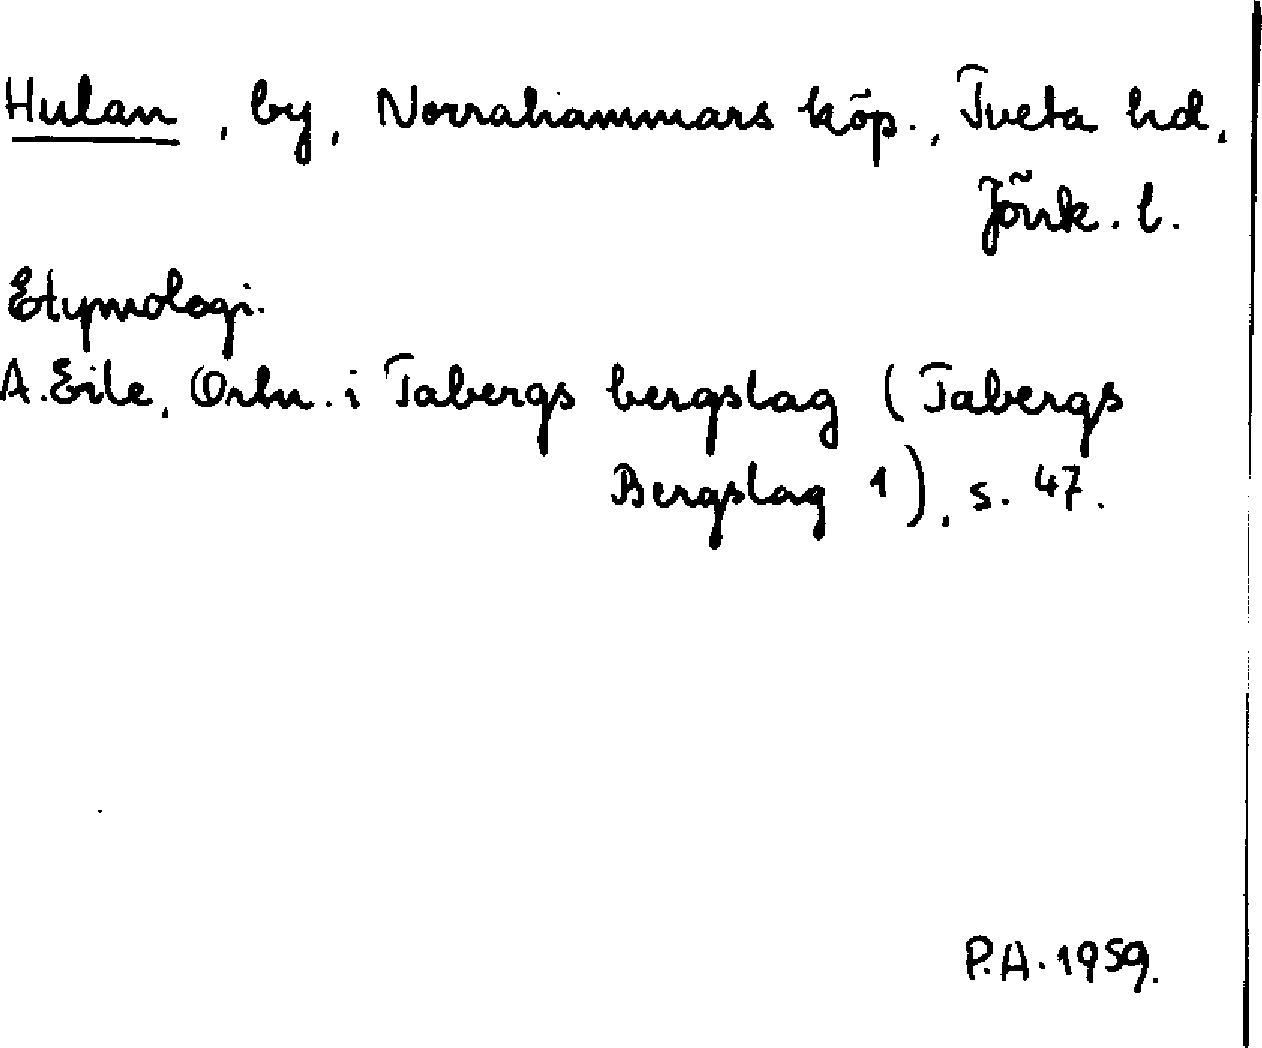 Hulan, by, Norrahammars köp., Tveta hd,
Jönk. l.
Etymologi.
A. Eile, Ortn. i Tabergs bergslag (Tabergs
Bergslag 1), s. 47.
P.A. 1959.